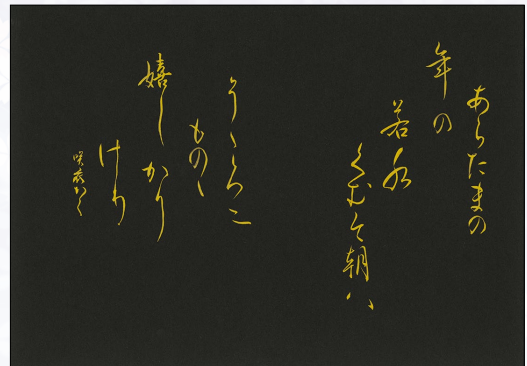 あらたまの
年の
若水
くむ今朝ハ
そゝろに
ものゝ
嬉しかり
けり